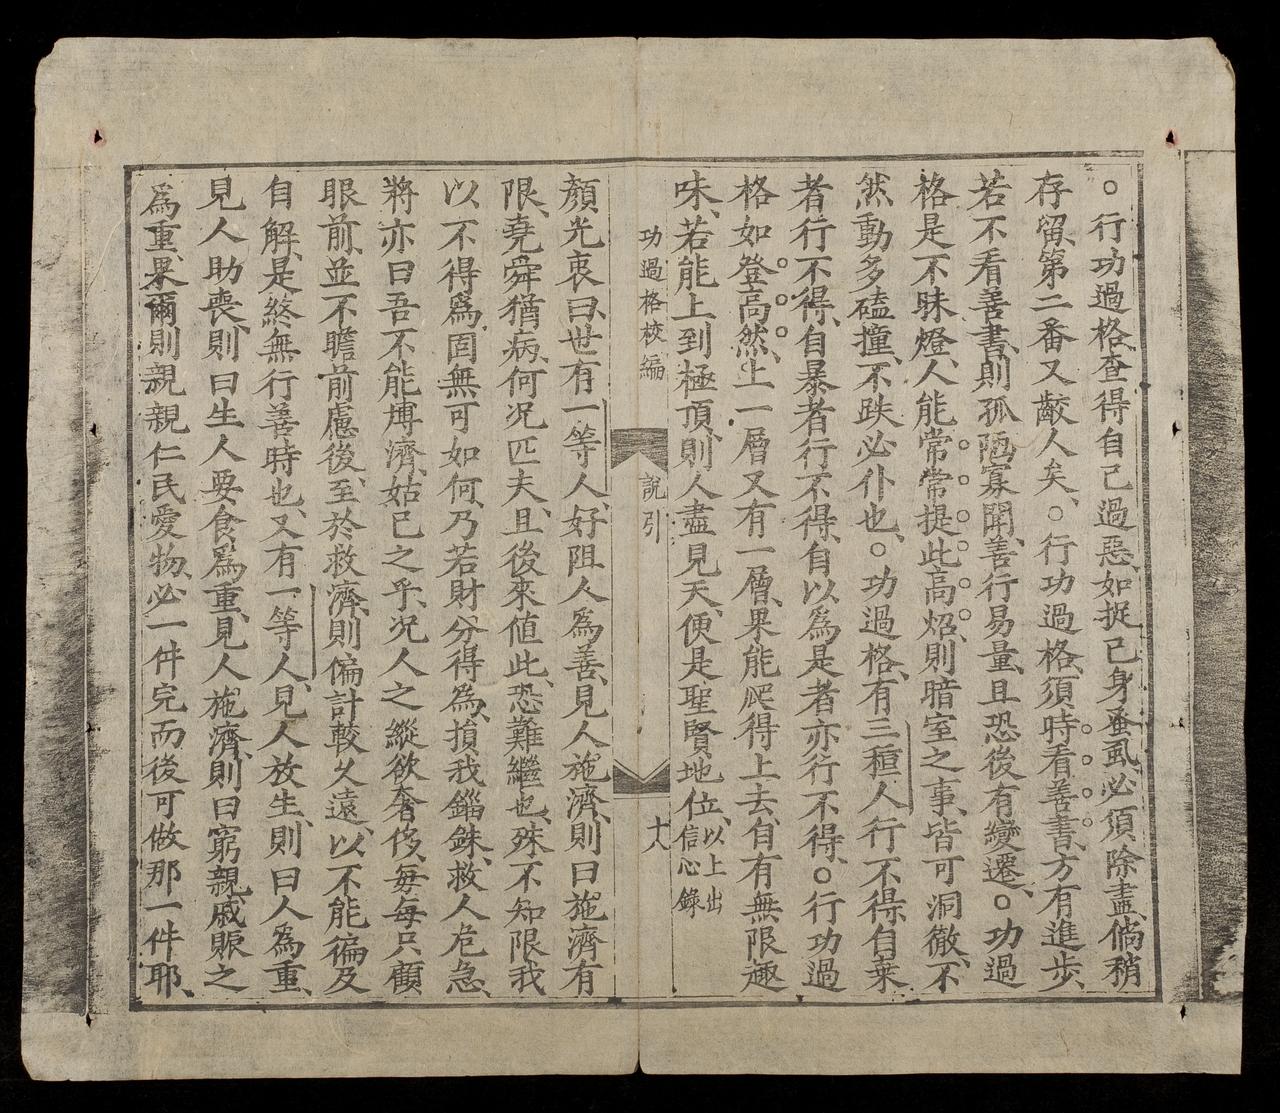 ○行功過格、查得自己過惡、如捉己身蚤虱、必須除盡、倘稍
存留、第二番又齩人矣、○行功過格、須時看善書、方有進步、
若不看善書、則孤陋寡聞、善行易量、且恐後有變遷、○功過
格是不昧燈、人能常常提此高炤、則暗室之事、皆可洞徹、不
然動多磕撞、不跌必仆也、○功過格、有三種人行不得、自棄
者行不得、自暴者行不得、自以爲是者亦行不得、○行功過
格如登高然、上一層又有一層、果能爬得上去、自有無限趣
味、若能上到極頂、則人盡見天、便是聖賢地位、以上出
信心錄
功過格校編
說引
十八
顏光衷曰、世有一等人、好阻人為善、見人施濟、則曰施濟有
限、堯舜猶病、何況匹夫、且後來值此、恐難繼也、殊不知限我
以不得爲、固無可如何、乃若財分得為、損我錙銖、救人危急、
將亦曰吾不能博濟、姑已之乎、況人之縱欲奢侈、每每只顧
眼前、並不瞻前慮後、至於救濟、則偏計較久遠、以不能徧及
自解、是終無行善時也、又有一等人、見人放生、則曰人為重、
見人助喪、則曰生人要食爲重、見人施濟、則曰窮親戚賑之
爲重、果爾則親親仁民愛物、必一件完而後可做那一件耶、